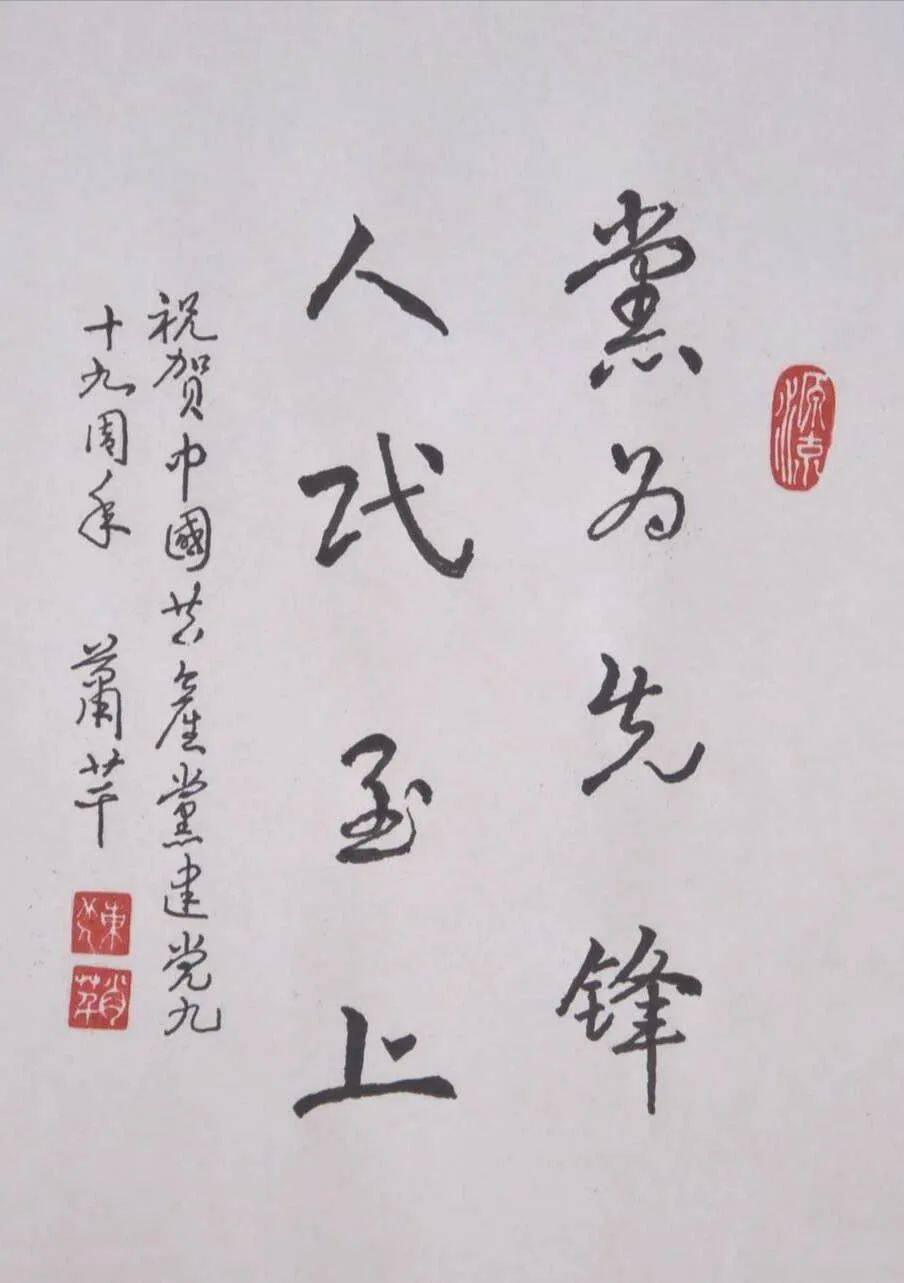 黨为先锋
人民至上
祝贺中國共產黨建党九
十九周年 蕭芊